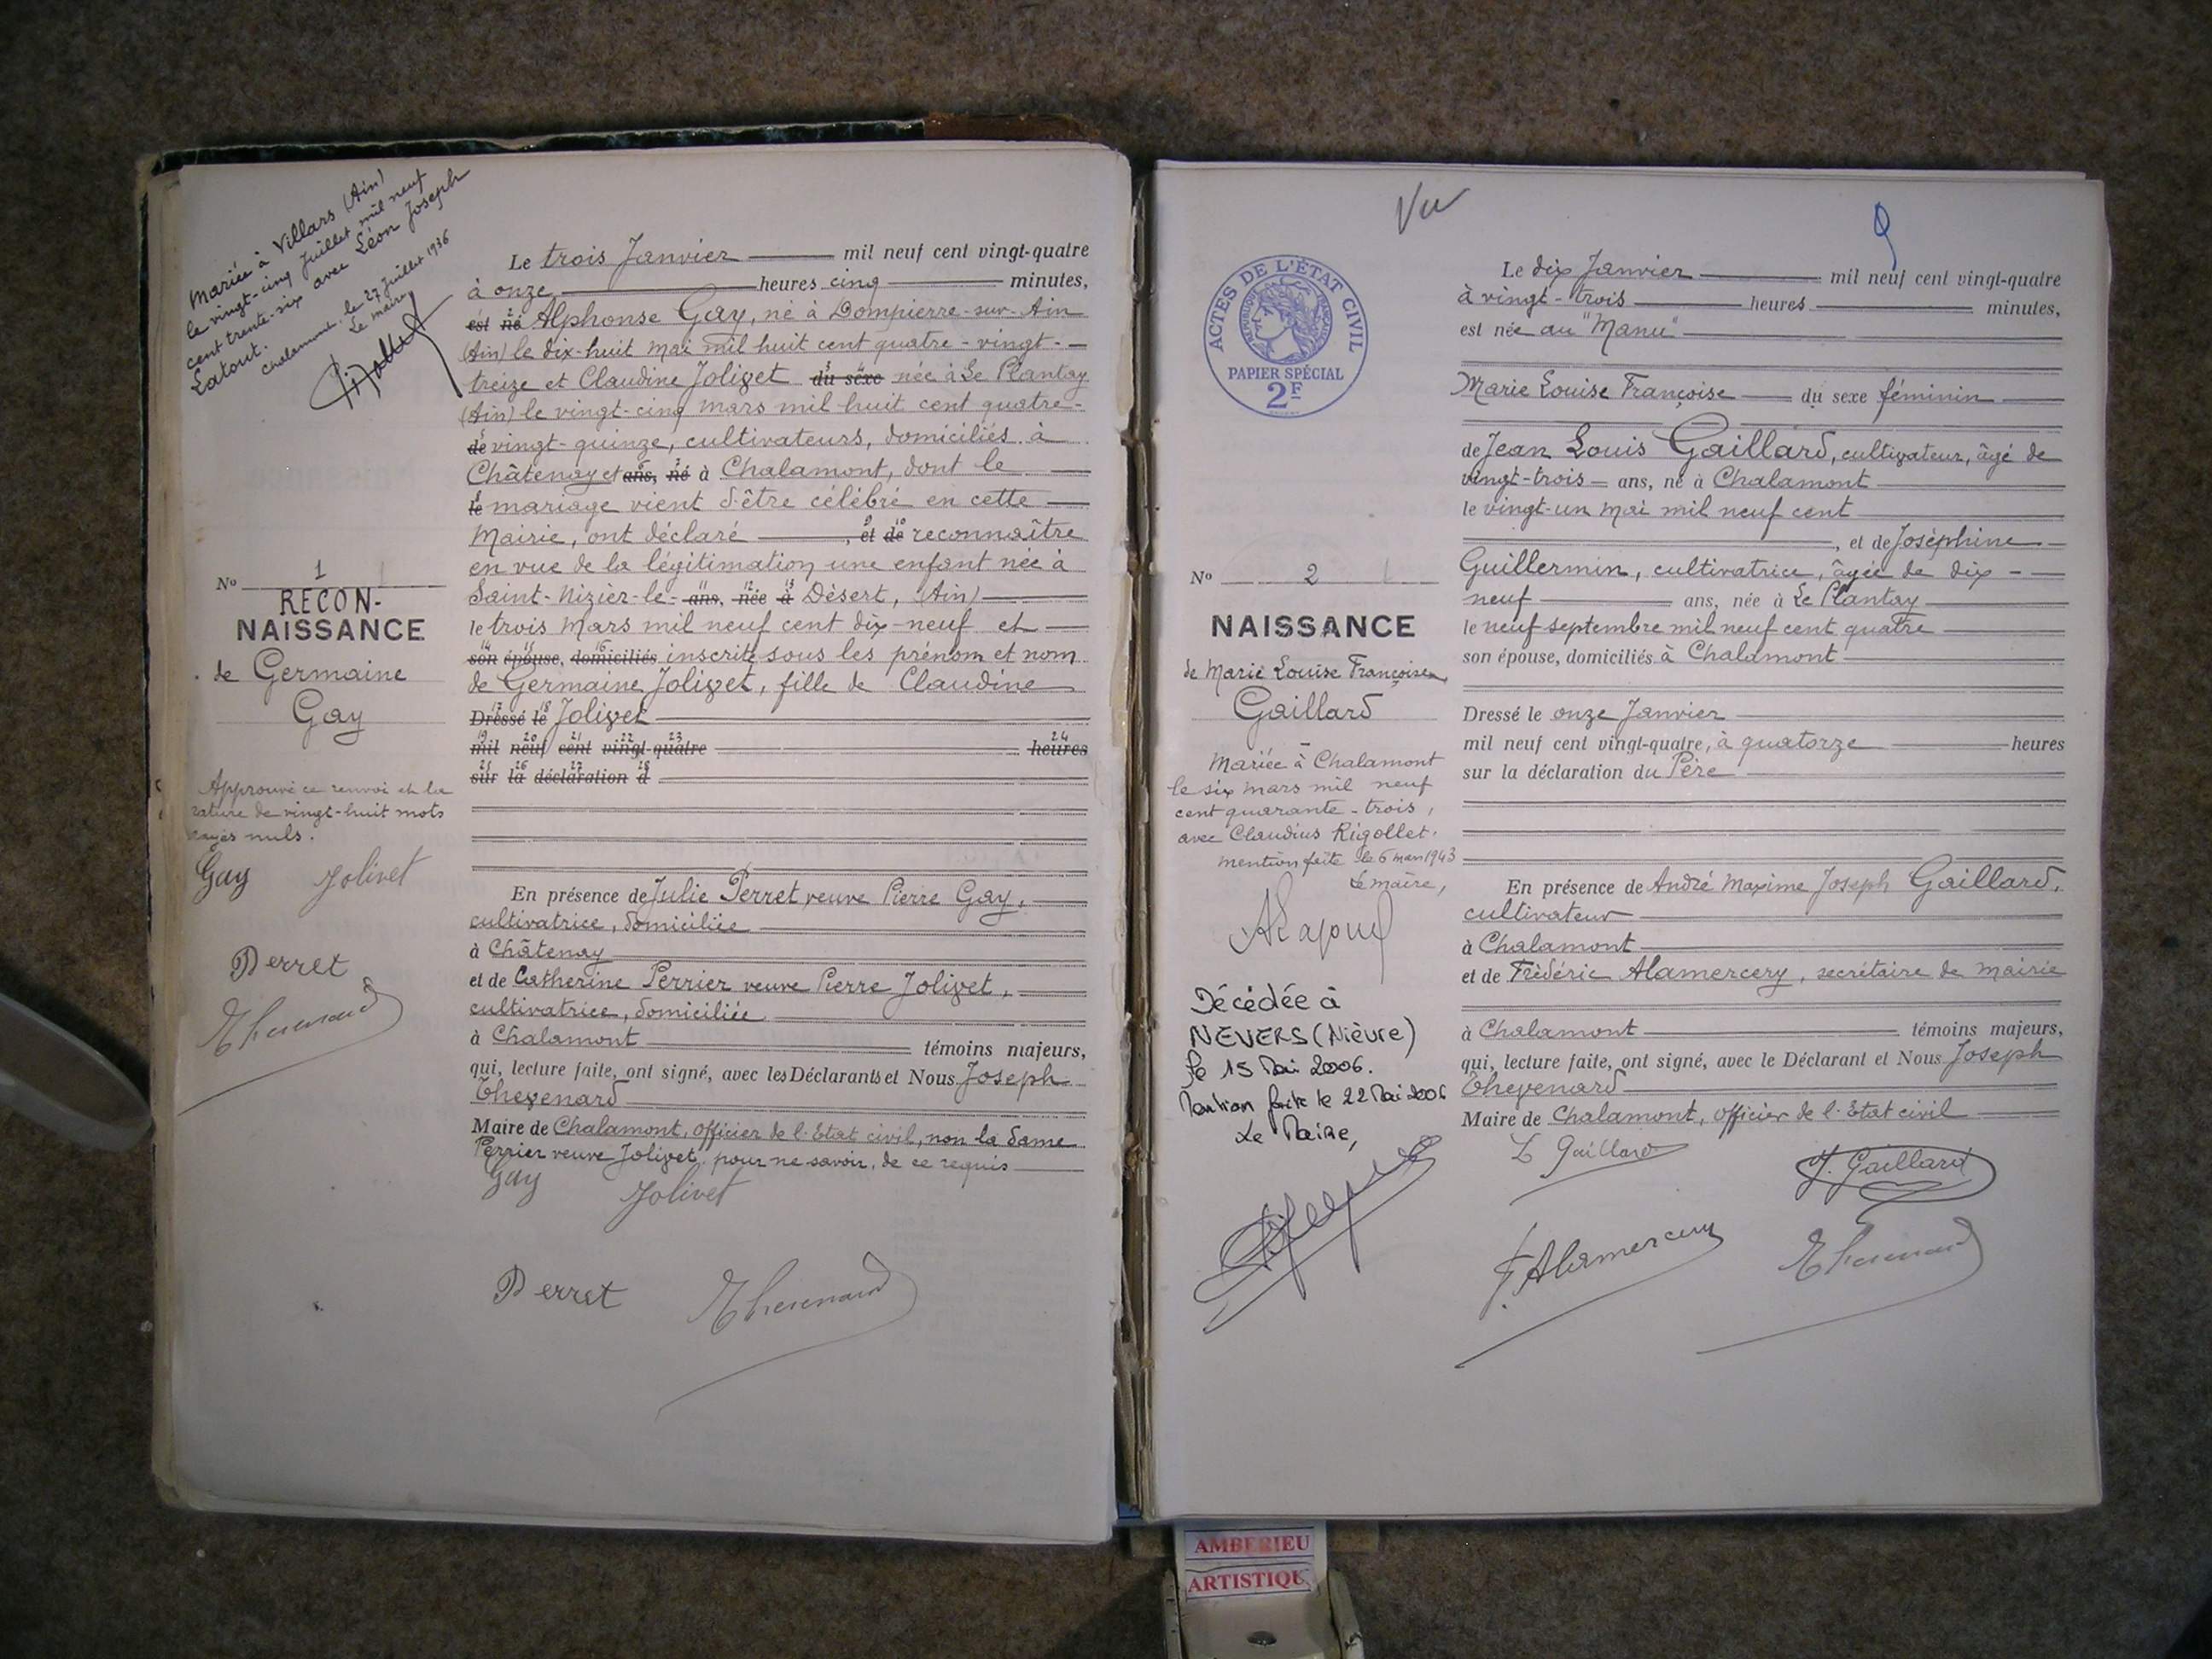 Mariée à Villars (Ain)
le vingt-cinq Juillet mil neuf
cent trente-six avec Léon Joseph
Latout.
Chalamont, le 27 Juillet 1936
Le maire,
Le trois Janvier mil neuf cent vingt-quatre
à onze heures cinq minutes,
est né Alphonse Gay, né à Dompierre-sur-Ain
(Ain) le dix-huit mai mil huit cent quatre-vingt-
treize et Claudine Jolivet du sexe née à Le Plantay
(Ain) le vingt-cinq mars mil huit cent quatre-
de vingt-quinze, cultivateurs, domiciliés à
Châtenay et ans, né à Chalamont, dont le
le mariage vient d'être célébré en cette
Mairie, ont déclaré , et de reconnaître
en vue de la légitimation une enfant née à
Saint-Nizier-le- ans, née à Désert, (Ain)
le trois mars mil neuf cent dix-neuf et
son épouse, domiciliés inscrite sous les prénom et nom
de Germaine Jolivet, fille de Claudine
Dressé le Jolivet
mil neuf cent vingt-quatre heures
sur la déclaration d
N° 1
RECON-
NAISSANCE
de Germaine
Gay
Approuvé ce renvoi et la
rature de vingt-huit mots
rayés nuls.
Gay Jolivet
Perret
Thevenard
En présence de Julie Perret veuve Pierre Gay,
cultivatrice, domiciliée
à Châtenay
et de Catherine Perrier veuve Pierre Jolivet,
cultivatrice, domiciliée
à Chalamont témoins majeurs,
qui, lecture faite, ont signé, avec les Déclarants et Nous Joseph
Thevenard
Maire de Chalamont, officier de l'Etat civil, non la dame
Perrier veuve Jolivet, pour ne savoir, de ce requis
Gay Jolivet
Perret Thevenard
Vu
9
ACTES DE L'ÉTAT CIVIL
RÉPUBLIQUE FRANÇAISE
PAPIER SPÉCIAL
2F
Le dix Janvier mil neuf cent vingt-quatre
à vingt-trois heures minutes,
est née au "Manu"
Marie Louise Françoise du sexe féminin
de Jean Louis Gaillard, cultivateur, âgé de
vingt-trois ans, né à Chalamont
le vingt-un mai mil neuf cent
, et de Joséphine
Guillermin, cultivatrice, âgée de dix-
neuf ans, née à Le Plantay
le neuf septembre mil neuf cent quatre
son épouse, domiciliés à Chalamont
Dressé le onze Janvier
mil neuf cent vingt-quatre, à quatorze heures
sur la déclaration du Père
N° 2
NAISSANCE
de Marie Louise Françoise
Gaillard
Mariée à Chalamont
le six mars mil neuf
cent quarante-trois,
avec Claudius Rigollet.
mention faite le 6 mars 1943
Le maire,
Décédée à
NEVERS (Nièvre)
le 15 Mai 2006.
Mention faite le 22 Mai 2006
Le Maire,
En présence de André Maxime Joseph Gaillard,
cultivateur
à Chalamont
et de Frédéric Alamercery, secrétaire de mairie
à Chalamont témoins majeurs,
qui, lecture faite, ont signé, avec le Déclarant et Nous Joseph
Thevenard
Maire de Chalamont, officier de l'Etat civil
L Gaillard J. Gaillard
F. Alamercery Thevenard
AMBERIEU
ARTISTIQUE